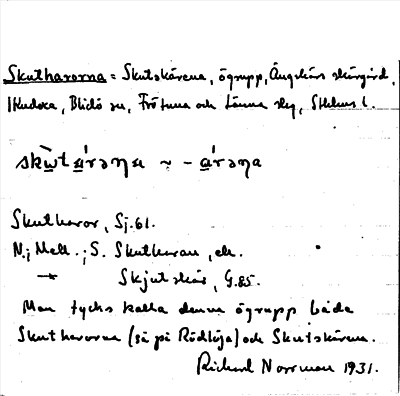 Skutharorna = Skutskärena, ögrupp, Ängskärs skärgård,
Blidö sn, Frötuna och Länna skg, Sthlms l.
Skutharor, Sj. 61.
N.; Mell.; S. Skutharan, ek.
→ Skjutskär, G. 85.
Man tycks kalla denna ögrupp båda
Skutharorna (så på Rödlöja) och Skutskärena.
Richard Norrman 1931.